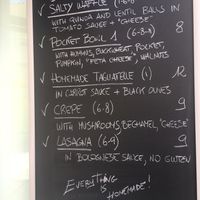 ✓ SALTY WAFFLE (6-8)
WITH QUINOA AND LENTIL BALLS IN
TOMATO SAUCE + "CHEESE"
✓ POCKET BOWL 1 (6-8-9) 8
WITH HUMMUS, BUCKWHEAT, POCKET,
PUMPKIN, "FETA CHEESE", WALNUTS
✓ HOMEMADE TAGLIATELLE (1) 12
IN CARROT SAUCE + BLACK OLIVES
✓ CREPE (6-8) 9
WITH MUSHROOMS, BECHAMEL, "CHEESE"
✓ LASAGNA (6-9) 9
IN BOLOGNESE SAUCE, NO GLUTEN
EVERYTHING
IS
HOMEMADE!